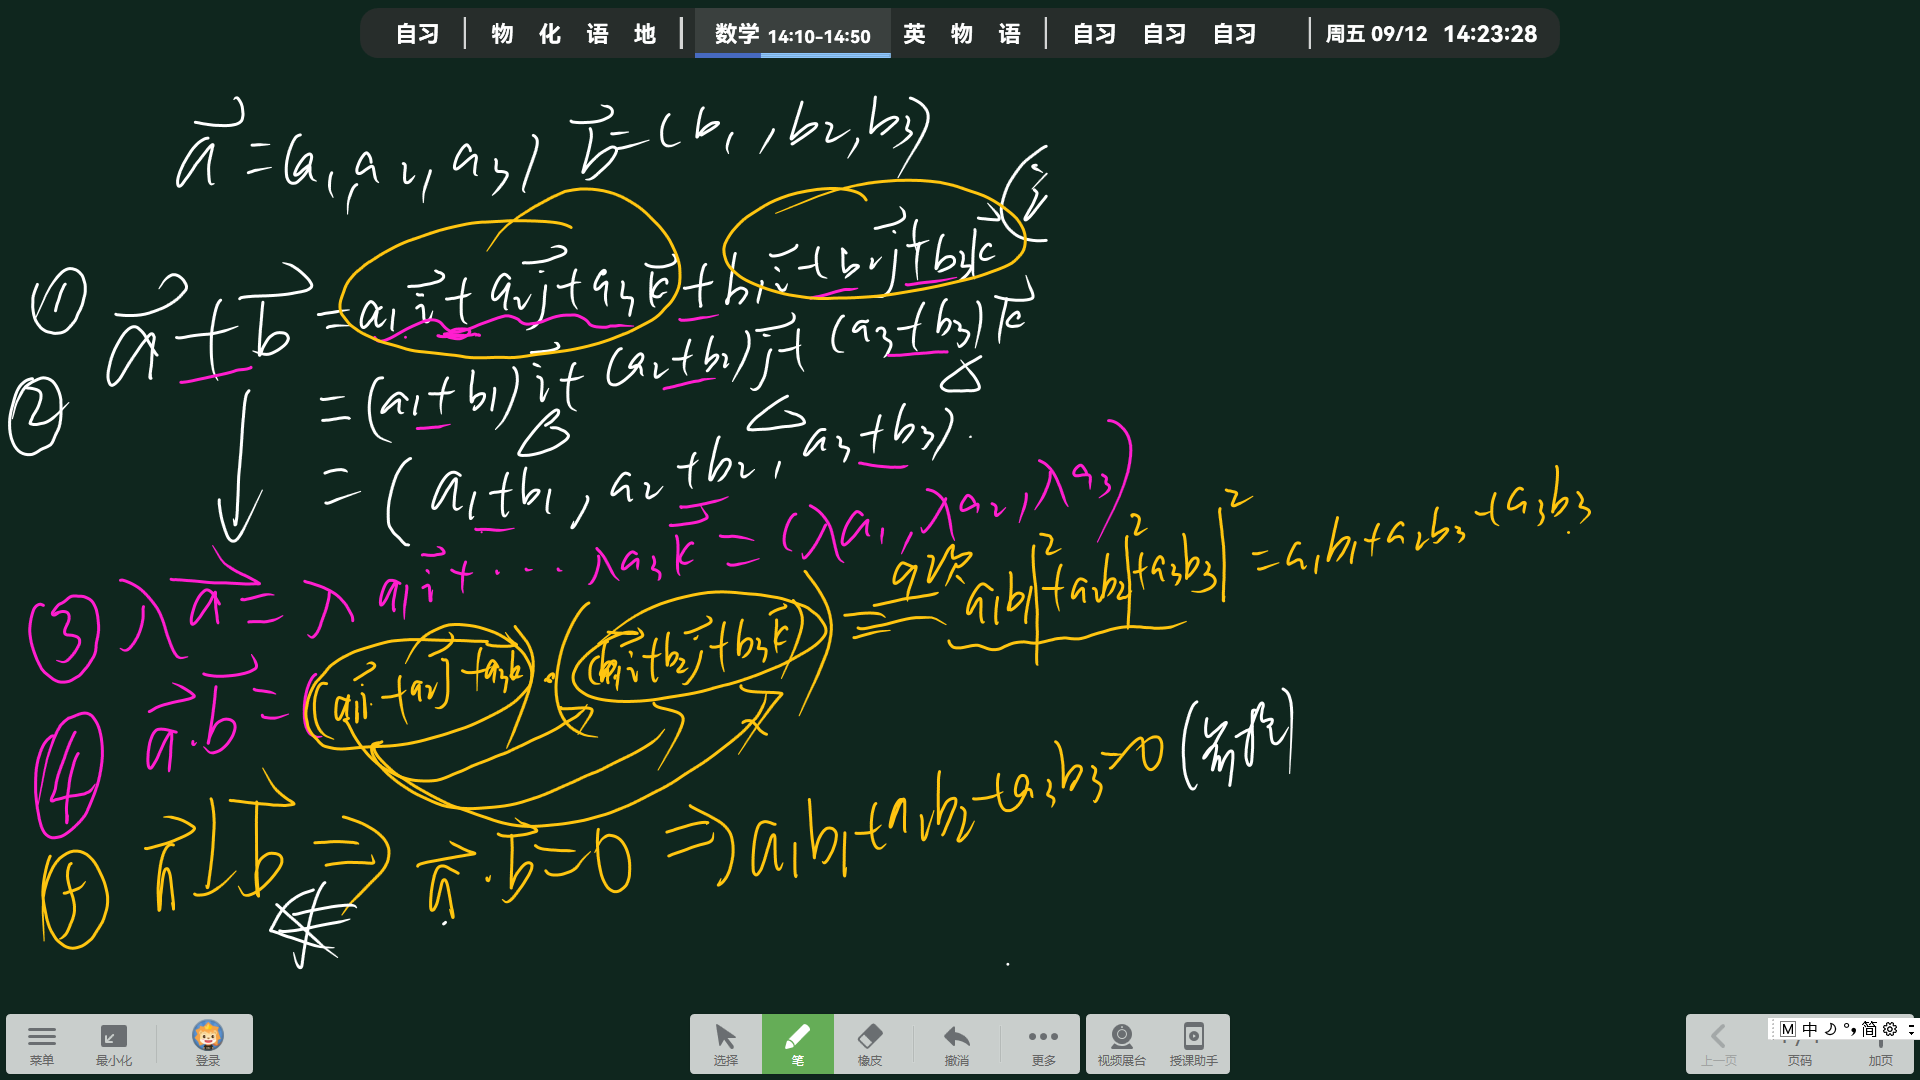 自习 物 化 语 地 数学 14:10-14:50 英 物 语 自习 自习 自习 周五 09/12 14:23:28
a⃗=(a₁,a₂,a₃) b⃗=(b₁,b₂,b₃)
① a⃗+b⃗=a₁i⃗+a₂j⃗+a₃k⃗+b₁i⃗+b₂j⃗+b₃k⃗
② =(a₁+b₁)i⃗+(a₂+b₂)j⃗+(a₃+b₃)k⃗
=(a₁+b₁,a₂+b₂,a₃+b₃).
③ λa⃗=λa₁i⃗+···λa₃k⃗=(λa₁,λa₂,λa₃)
④ a⃗·b⃗=(a₁i⃗+a₂j⃗+a₃k⃗)·(b₁i⃗+b₂j⃗+b₃k⃗) =9次= a₁b₁|²+a₂b₂|²+a₃b₃|²=a₁b₁+a₂b₃+a₃b₃
⑤ a⃗⊥b⃗⇒a⃗·b⃗=0⇒a₁b₁+a₂b₂+a₃b₃=0
菜单 最小化 登录 选择 笔 橡皮 撤消 更多 视频展台 授课助手 上一页 页码 加页
M 中 简